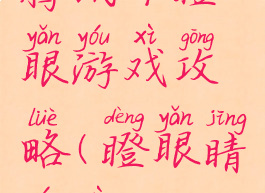 yǎn yóu xì gōng
眼游戏攻
lüè dèng yǎn jīng
略(瞪眼睛